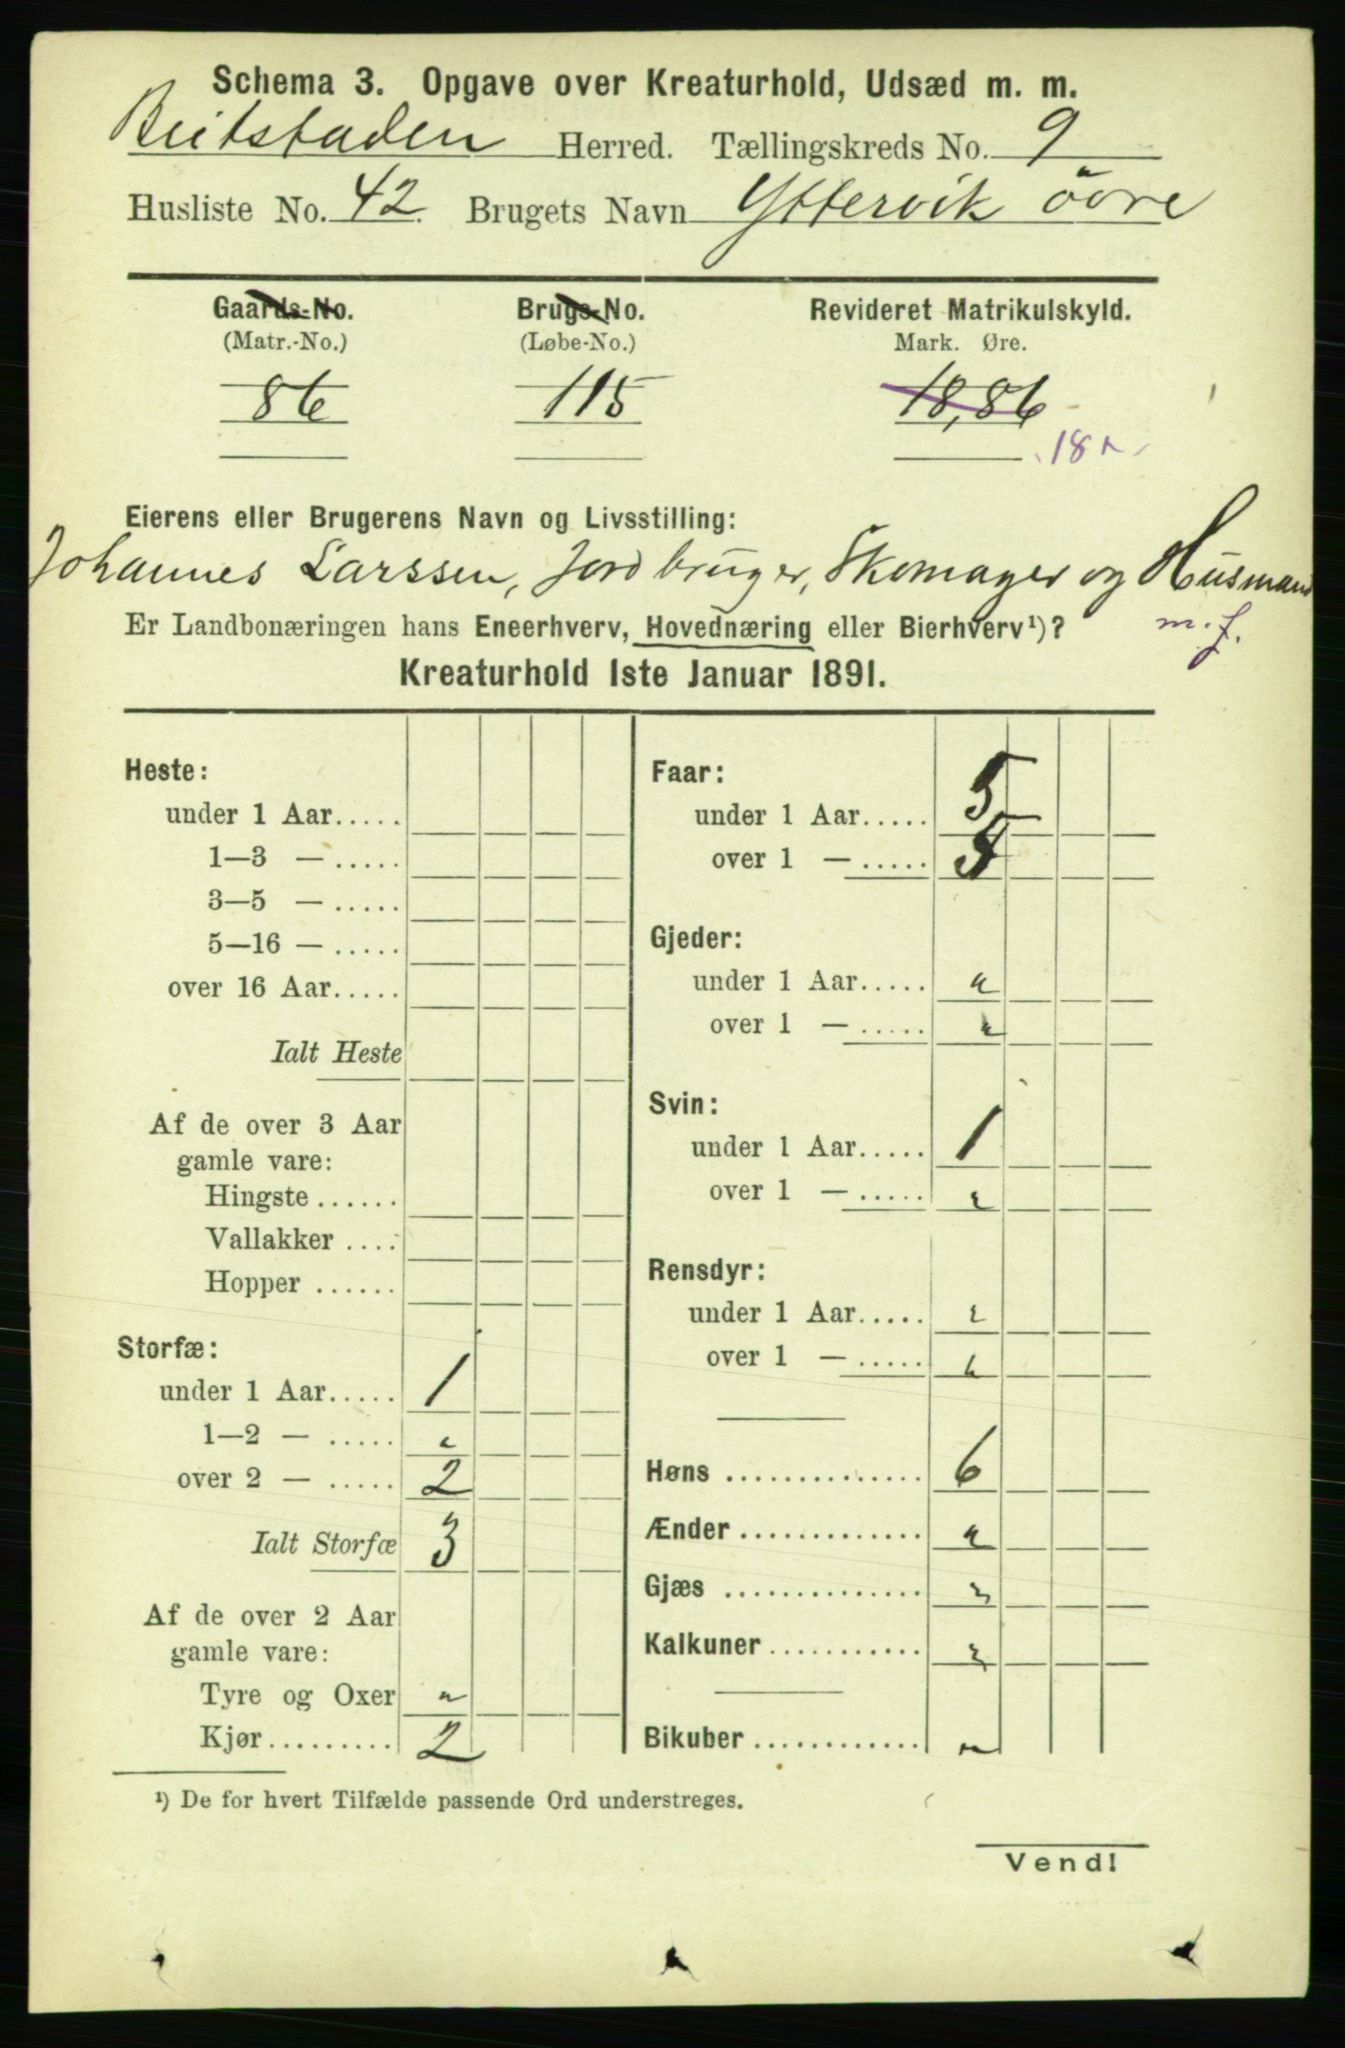 Schema 3. Opgave over Kreaturhold, Udsæd m. m.
Beitstaden Herred. Tællingskreds No. 9
Husliste No. 42. Brugets Navn Yttervik övre
Gaards-No. Brugs-No. Revideret Matrikulskyld.
(Matr.-No.) (Løbe-No.) Mark. Øre.
86 115 18,86
18
Eierens eller Brugerens Navn og Livsstilling:
Johannes Larssen, Jordbruger, Skomager og Husmand
m. j.
Er Landbonæringen hans Eneerhverv, Hovednæring eller Bierhverv¹)?
Kreaturhold 1ste Januar 1891.
Heste:
under 1 Aar.....
1—3 — .....
3—5 — .....
5—16 — .....
over 16 Aar.....
Ialt Heste
Af de over 3 Aar
gamle vare:
Hingste ......
Vallakker ....
Hopper ......
Storfæ:
under 1 Aar..... 1
1—2 — ..... "
over 2 — ..... 2
Ialt Storfæ 3
Af de over 2 Aar
gamle vare:
Tyre og Oxer "
Kjør......... 2
Faar:
under 1 Aar..... 5
over 1 — ..... 5
Gjeder:
under 1 Aar..... "
over 1 — ..... "
Svin:
under 1 Aar..... 1
over 1 — ..... "
Rensdyr:
under 1 Aar..... "
over 1 — ..... "
Høns .............. 6
Ænder ............. "
Gjæs .............. "
Kalkuner ........... "
Bikuber ............ "
¹) De for hvert Tilfælde passende Ord understreges.
Vend!